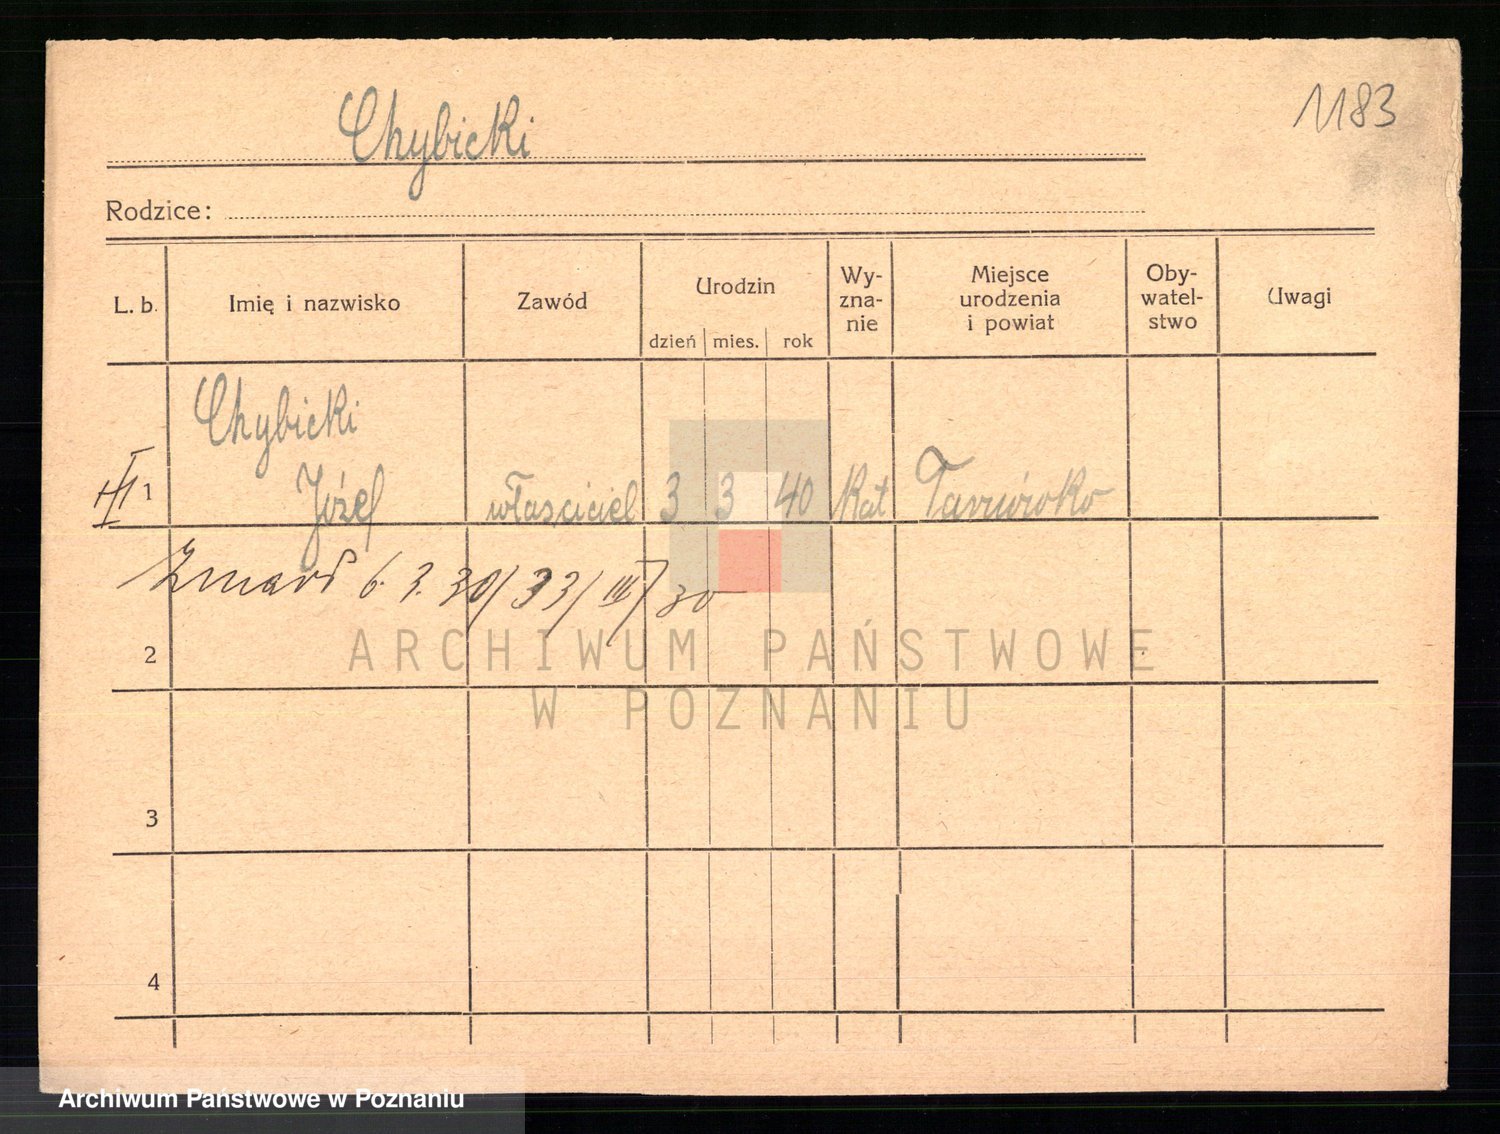 1183
Chybicki
Rodzice:
L. b.
Imię i nazwisko
Zawód
Urodzin
dzień mies. rok
Wy-
zna-
nie
Miejsce
urodzenia
i powiat
Oby-
watel-
stwo
Uwagi
Chybicki
1 Józef właściciel 3 3 40 Kat
Zmarł 6. 3. 30/33/III/30
2
ARCHIWUM PAŃSTWOWE
W POZNANIU
3
4
Archiwum Państwowe w Poznaniu